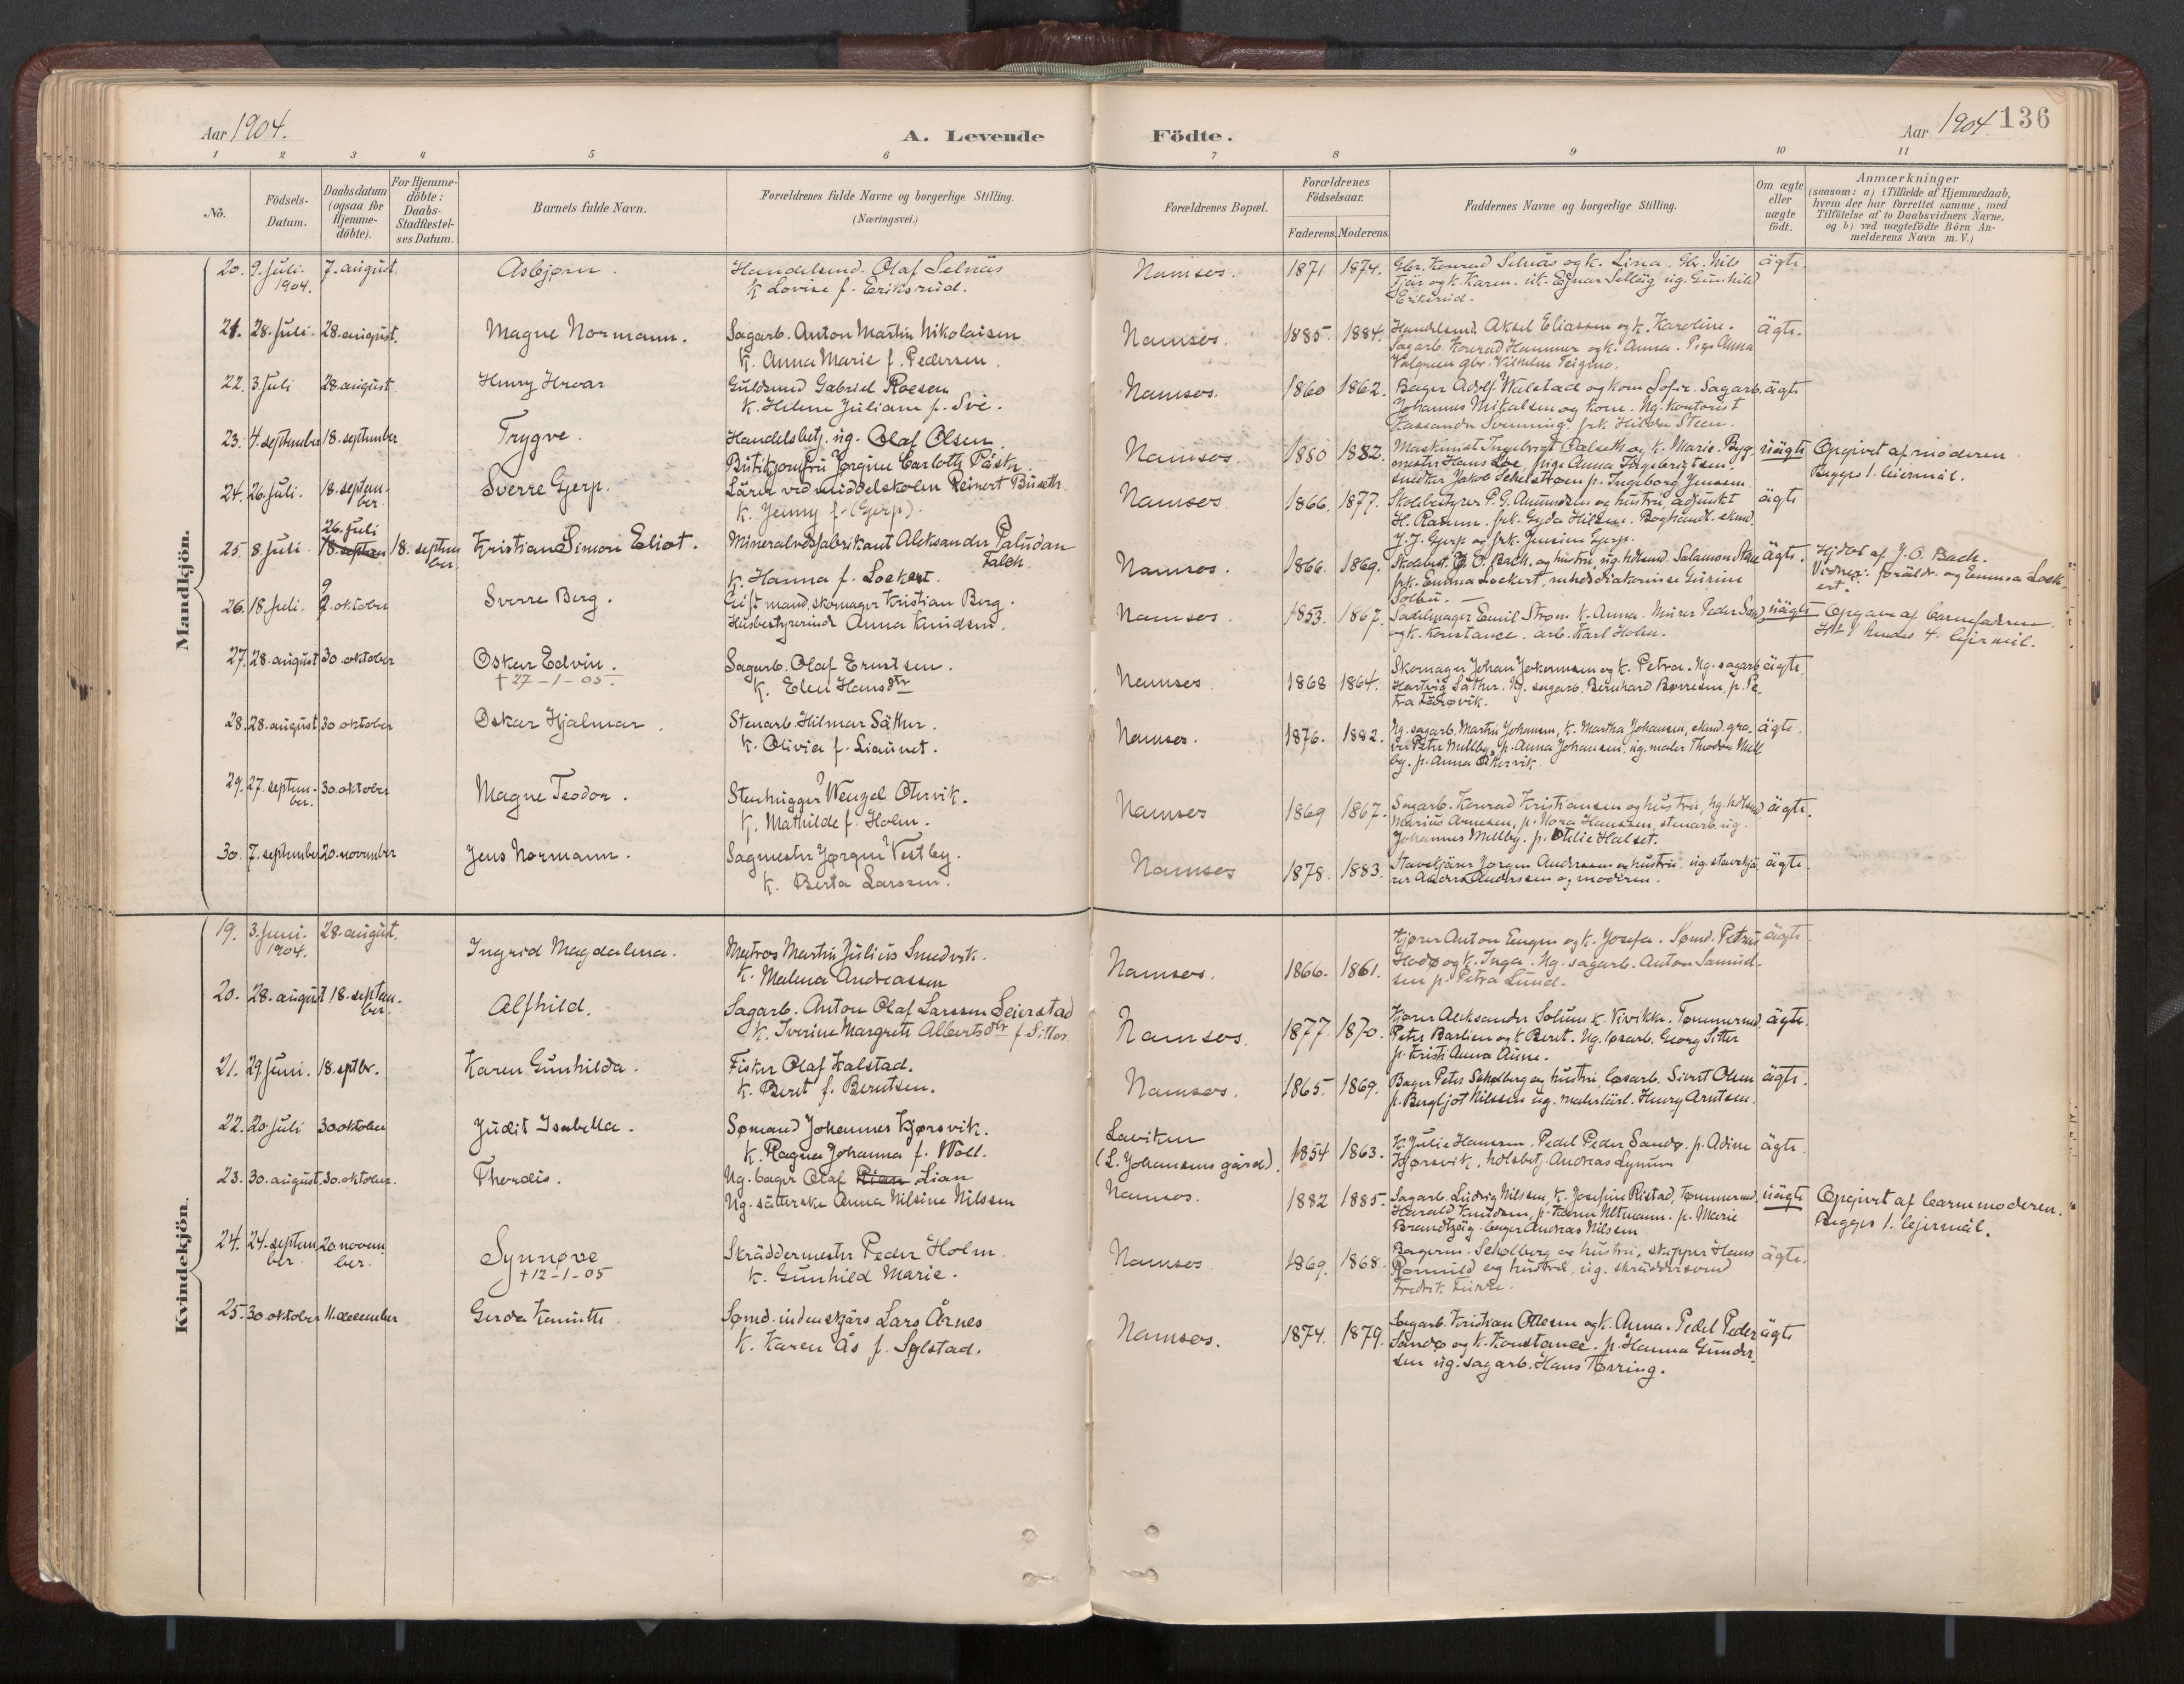 Aar 1904.
A. Levende
Födte.
Aar 1904.
136
1 2 3 4 5 6 7 8 9 10 11
No.
Födsels-
Datum.
Daabsdatum
(ogsaa for
Hjemme-
döbte).
For Hjemme-
döbte:
Daabs-
Stadfæstel-
ses Datum.
Barnets fulde Navn.
Forældrenes fulde Navne og borgerlige Stilling.
(Næringsvei.)
Forældrenes Bopæl.
Forældrenes
Födselsaar.
Faderens. Moderens.
Faddernes Navne og borgerlige Stilling.
Om ægte
eller
uægte
födt.
Anmærkninger
(saasom: a) i Tilfælde af Hjemmedaab,
hvem der har forrettet samme, med
Tilföielse af to Daabsvidners Navne,
og b) ved uægtefödte Börn An-
melderens Navn m. V.)
Mandkjön.
20. 9. juli. 1904. 7. august.
Asbjørn.
Handelsmd. Olaf Selnäs
k. Lovise f. Eriksrud.
Namsos. 1871 1874.
Gbr. Konrad Selnäs og k. Lina. Gbr. Nils
og k. Karen. Gunhild
Eriksrud.
ägte.
21. 28. juli. 28. august.
Magne Normann.
Sagarb. Anton Martin Nikolaisen
k. Anna Marie f. Pedersen.
Namsos. 1885. 1884.
Handelsmd. Aksel Eliassen og k. Karoline.
Sagarb. Konrad Hammer og k. Anna. Pige Anna
Valgren gbr. Vilhelm Teigmo.
ägte.
22. 3. juli 28. august.
Henry Hroar
Guldsmed Gabriel Roesen
k. Helene Juliane f. Své.
Namsos. 1860 1862.
Bager Adolf Walstad og kone Sofie. Sagarb.
Johannes Mikalsen og kone. Ug. kontorist
Kassandra Svenning. frk. Hilda Steen.
ägte
23. 4. september 18. september
Trygve.
Handelsbetj. ug. Olaf Olsen.
Butikjomfru Jørgine Carlotte
Namsos. 1880 1882.
Maskinist Ingebrigt Dalseth og k. Marie. Byg-
mester Hans Loe, pige Anna Ingebrigtsen.
snedker Jakob p. Ingeborg Jenssen.
uägte
Opgivet af moderen.
Begges 1. leiermål.
24. 26. juli. 18. septem-
ber.
Sverre Gjerp.
Lärer ved middelskolen Reinert Buseth
k. Jenny f. (Gjerp).
Namsos 1866. 1877.
Skolebestyrer P. G. Amundsen og hustru, adjunkt
H. Ramm. frk. Gyda Hilsen. Boghandl. ekmd.
J. J. Gjerp og frk. Jensine Gjerp.
ägte
25. 8. juli. 26. juli 18. septem
ber.
Kristian Simon Eliot.
Mineralvandsfabrikant Aleksander Paludan
Falck.
k. Hanna f. Lockert.
Namsos. 1866. 1869.
Skolebest. O. Bach. og hustru, ug. hdlsmd. Salamon
frk. Emma Lockert, menhedsdiakonisse
Solbu.
ägte.
Hjdbt af J. O. Bach.
Vidner: foräldr. og Emma Lock-
ert.
26. 18. juli. 9. oktober
Sverre Berg.
Gift mand, skomager Kristian Berg.
Husbestyrerinde Anna Knudsen.
Namsos. 1853. 1867.
Sadelmager Emil Strøm k. Anna. Murer Peder
og k. Konstance. arb. Karl Holm.
uägte
Opgave af barnefaderen
1 hendes 4. lejermål.
27. 28. august 30. oktober
Oskar Edvin.
† 27-1-05.
Sagarb. Olaf Ernstsen.
k. Elen Hansdtr
Namsos. 1868 1864.
Skomager Johan og k. Petra. Ug. sagarb
Hartvig Säther. Ug. sagarb. Bernhard Børresen, p. Pe-
tra
ägte.
28. 28. august 30. oktober
Oskar Hjalmar.
Stenarb. Hilmar Säther.
k. Olivia f. Liaunet.
Namsos. 1876. 1882.
Ug. sagarb. Martin Johansen, k. Martha Johansen, ekmd. gra-
ver Peter Mellby, p. Anna Johansen, ug. maler Theodor Mell
by. p. Anna Åkervik.
ägte.
29. 27. septem-
ber. 30. oktober
Magne Teodor.
Stenhugger Wenzel Otervik.
k. Mathilde f. Holm.
Namsos 1869 1867.
Sagarb. Konrad Kristiansen og hustru, ug. hdlsmd
Marius Arnesen, p. Nora Hanssen, stenarb. ug.
Johannes Mellby. p. Otelie Halset.
ägte.
30. 7. september 20. november
Jens Normann.
Sagmester Jørgen Vestby.
k. Berta Larssen.
Namsos 1878. 1883.
Staveskjärer Jørgen Anderssen og hustru. ug. staveskjä-
rer Anders Anderssen og moderen.
ägte.
Kvindekjön.
19. 3. juni. 1904. 28. august.
Ingrid Magdalena.
Matros Martin Julius Smedvik.
k. Malena Andreassen
Namsos. 1866. 1861.
Kjører Anton Eugen og k. Josefa. Sømd. Petrus
Hodø og k. Inga. Ug. sagarb. Anton Samuel-
sen p. Petra Lund.
ägte.
20. 28. august 18. septem-
ber.
Alfhild.
Sagarb. Anton Olaf Larssen Seierstad
k. Iverine Margrete Albertsdtr f. Sitter
Namsos. 1877. 1870.
Kjører Aleksander Solum k. Vivikke. Tømmermd.
Peter Barlien og k Beret. Ug. løsarb. Georg Sitter
p. Kristi Anna Aune.
ägte.
21. 29. juni. 18. septbr.
Karen Gunhilda.
Fisker Olaf Kalstad.
k. Beret f. Berntsen.
Namsos. 1865. 1869.
Bager Peter Schølberg og hustru, løsarb. Sivert Olsen
p. Bergljot Nilssen ug. malerlärl. Henry Arntsen.
ägte.
22. 20 juli 30 oktober
Judit Isabella.
Sømand Johannes Kjørsvik.
k. Ragna Johanna f. Woll.
Laviken
(L. Johansens gård). 1854 1863.
k. Julie Hanssen. Pedel Peder Sandø. p. Adine
Kjørsvik, hdlsbetj. Andreas Lynum
ägte.
23. 30. august. 30. oktober.
Thordis.
Ug. bager Olaf Rian Lian
Ug. sätterske Anna Nilsine Nilssen
Namsos. 1882 1885.
Sagarb. Ludvig Nilssen, k. Josefine Ristad, Tømmermd.
Harald Knudsen, p. Karen Altmann. p. Marie
Brandtzäg. bager Andreas Nilssen
uägte
Opgivet af barnemoderen.
Begges 1. lejermål.
24. 24. septem
ber 20. novem
ber.
Synnøve
† 12-1-05
Skräddermester Peder Holm.
k. Gunhild Marie.
Namsos 1869. 1868.
Bagerm. Schølberg og hustru, skipper Hans
Romuld og hustru, ug. skräddersvend
Fredrik
ägte.
25. 30. oktober 11. december
Gerda Kamitte.
Sømd. indenskjärs Lars Årnes
k. Karen Ås f. Sylstad.
Namsos. 1874. 1879.
Sagarb. Kristian Ottesen og k. Anna. Pedel Peder
Sandø og k. Konstance. p. Hanna Gunder-
sen ug. sagarb. Hans Tørring.
ägte